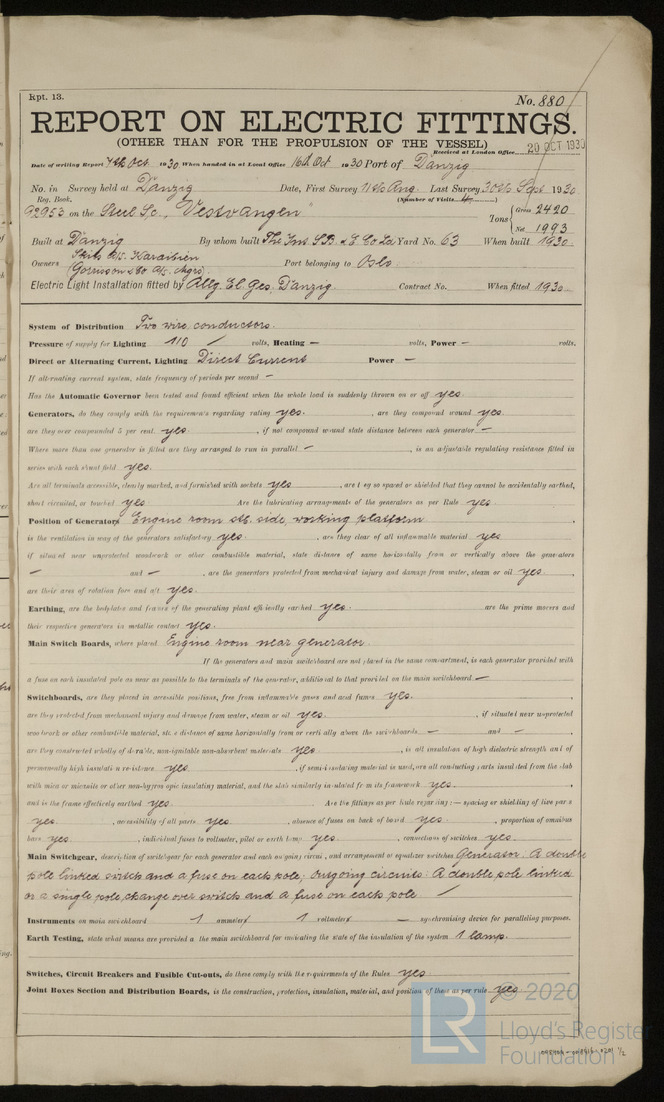 Rpt. 13.
No. 880
REPORT ON ELECTRIC FITTINGS.
(OTHER THAN FOR THE PROPULSION OF THE VESSEL)
Received at London Office 20 OCT 1930
Date of writing Report 7th Oct 1930 When handed in at Local Office 16th Oct 1930 Port of Danzig
No. in Survey held at Danzig Date, First Survey 11th Aug. Last Survey 30th Sept 1930
Reg. Book. (Number of Visits 4)
92953 on the Steel Sc. Vestvangen Tons {Gross 2420
Net 1993
Built at Danzig By whom built The Int. S.B. & E. Co Ld Yard No. 63 When built 1930
Owners Skibs A/s. Karaibien
(Gorrissen & Co A/s. Mgrs) Port belonging to Oslo
Electric Light Installation fitted by Allg. El. Ges. Danzig. Contract No. When fitted 1930
System of Distribution Two wire conductors.
Pressure of supply for Lighting 110 volts, Heating — volts, Power — volts.
Direct or Alternating Current, Lighting Direct Current Power —
If alternating current system, state frequency of periods per second —
Has the Automatic Governor been tested and found efficient when the whole load is suddenly thrown on or off yes.
Generators, do they comply with the requirements regarding rating yes. , are they compound wound yes.
are they over compounded 5 per cent. yes. , if not compound wound state distance between each generator —
Where more than one generator is fitted are they arranged to run in parallel — , is an adjustable regulating resistance fitted in
series with each shunt field yes.
Are all terminals accessible, clearly marked, and furnished with sockets yes , are they so spaced or shielded that they cannot be accidentally earthed,
short circuited, or touched yes Are the lubricating arrangements of the generators as per Rule yes.
Position of Generators Engine room stb. side, working platform
is the ventilation in way of the generators satisfactory yes. , are they clear of all inflammable material yes.
if situated near unprotected woodwork or other combustible material, state distance of same horizontally from or vertically above the generators
— and — , are the generators protected from mechanical injury and damage from water, steam or oil yes. ,
are their axes of rotation fore and aft yes.
Earthing, are the bedplates and frames of the generating plant efficiently earthed yes. are the prime movers and
their respective generators in metallic contact yes.
Main Switch Boards, where placed Engine room near generator.
If the generators and main switchboard are not placed in the same compartment, is each generator provided with
a fuse on each insulated pole as near as possible to the terminals of the generator, additional to that provided on the main switchboard —
Switchboards, are they placed in accessible positions, free from inflammable gases and acid fumes yes. ,
are they protected from mechanical injury and damage from water, steam or oil yes. , if situated near unprotected
woodwork or other combustible material, state distance of same horizontally from or vertically above the switchboards — and — ,
are they constructed wholly of durable, non-ignitable non-absorbent materials yes. , is all insulation of high dielectric strength and of
permanently high insulation resistance yes. , if semi-insulating material is used, are all conducting parts insulated from the slab
with mica or micanite or other non-hygroscopic insulating material, and the slab similarly insulated from its framework yes. ,
and is the frame effectively earthed yes. Are the fittings as per Rule regarding:— spacing or shielding of live parts
yes. , accessibility of all parts yes. , absence of fuses on back of board yes. , proportion of omnibus
bars yes. , individual fuses to voltmeter, pilot or earth lamp yes. , connections of switches yes.
Main Switchgear, description of switchgear for each generator and each outgoing circuit, and arrangement of equalizer switches Generator: A double
pole linked switch and a fuse on each pole; Outgoing circuits: A double pole linked
or a single pole change over switch and a fuse on each pole
Instruments on main switchboard 1 ammeters 1 voltmeters — synchronising device for paralleling purposes.
Earth Testing, state what means are provided at the main switchboard for indicating the state of the insulation of the system 1 lamp.
Switches, Circuit Breakers and Fusible Cut-outs, do these comply with the requirements of the Rules yes.
Joint Boxes Section and Distribution Boards, is the construction, protection, insulation, material, and position of these as per rule yes.
LR © 2020
Lloyd's Register
Foundation
1/2